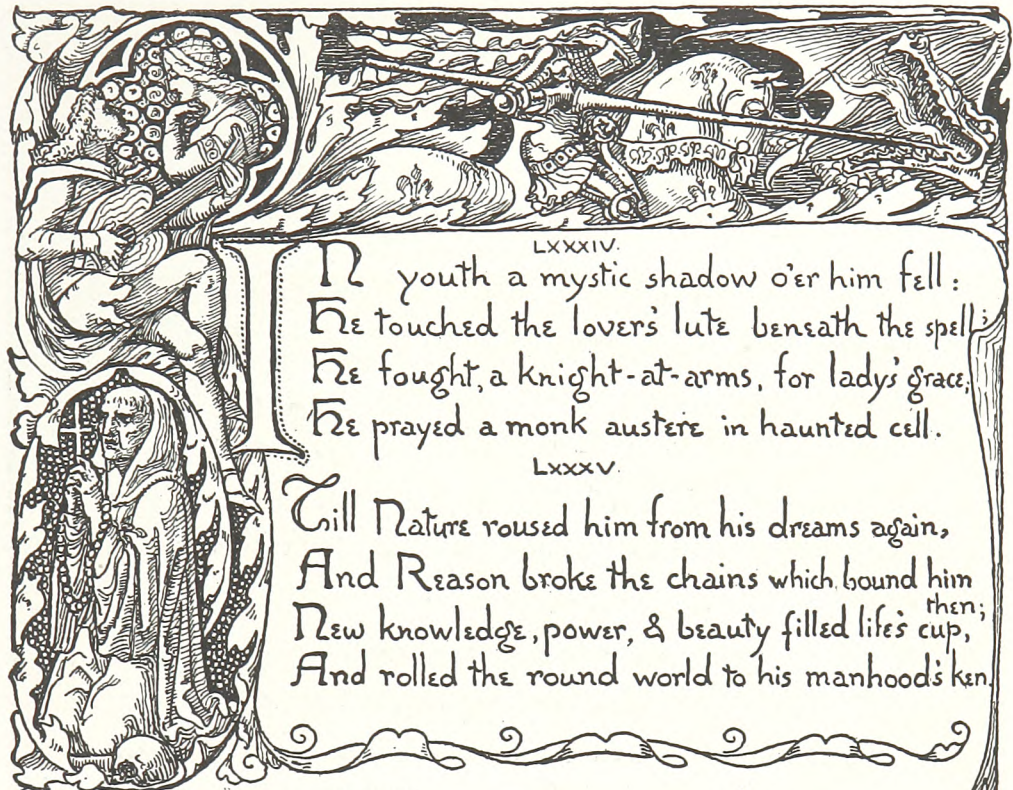 LXXXIV.
IN youth a mystic shadow o'er him fell:
He touched the lovers' lute beneath the spell;
He fought, a knight-at-arms, for lady's grace,
He prayed a monk austere in haunted cell.
LXXXV.
Till Nature roused him from his dreams again,
And Reason broke the chains which bound him then;
New knowledge, power, & beauty filled life's cup,
And rolled the round world to his manhood's ken.